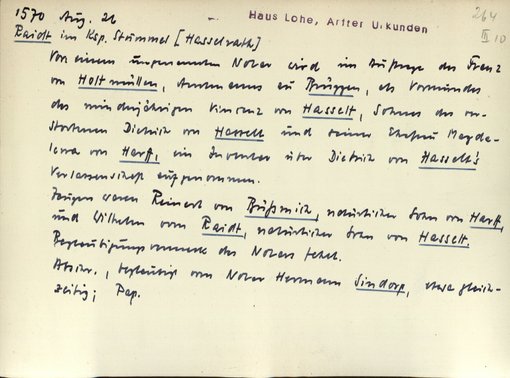 1570 Aug. 26
Haus Lohe, Artter Urkunden
264
III 10
Raidt im Ksp. Strümmel [Hasselrath]
Von einem ungenannten Notar wird im Auftrage des Franz
von Holtmüllen, Amtmanns zu Brüggen, als Vormundes
des minderjährigen Vincenz von Hasselt, Sohnes des ver-
storbenen Dietrich von Hasselt und seiner Ehefrau Magda-
lena von Harff, ein Inventar über Dietrich von Hasselt's
Verlassenschaft aufgenommen.
Zeugen waren Reinert von, natürlicher Sohn von Harff,
und Wilhelm vom Raidt, natürlicher Sohn von Hasselt.
Beglaubigungsvermerk des Notars fehlt.
Abschr., beglaubigt vom Notar Hermann Sindorp, etwa gleich-
zeitig; Pap.